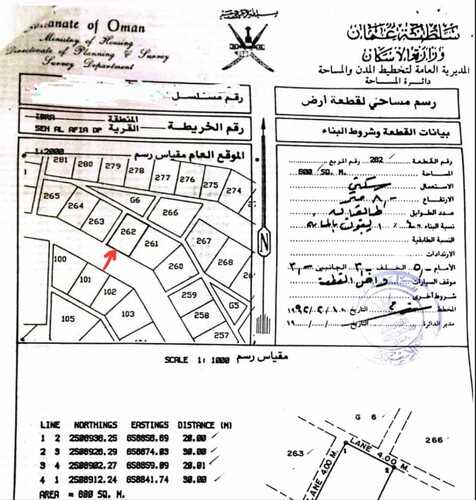 anate of Oman
Ministry of Housing
Directorate of Planning & Survey
Survey Department
سلطنة عمان
وزارة الاسكان
المديرية العامة لتخطيط المدن والمساحة
دائرة المساحة
رقم مسلسل
IBRA المنطقة
SEH AL AFIA DP القرية
رقم الخريطة
رسم مساحي لقطعة أرض
بيانات القطعة وشروط البناء
1:2000 الموقع العام مقياس رسم
رقم القطعة 262 رقم المربع
المساحة 600 SQ. M.
الاستعمال سكني
الارتفاع
عدد الطوابق
نسبة البناء
النسبة الطابقية
الارتدادات
الأمام 5 الخلف 3 الجانبين 3
موقف السيارات داخل القطعة
شروط أخرى
المخطط التاريخ
مدير الدائرة التاريخ ١٩
281 280 279 278 277 276 275 274
265 264 263 G6 262 261 260
100 101 102 103 104 105
259 258 257 G5
SCALE 1: 1000 مقياس رسم
LINE NORTHINGS EASTINGS DISTANCE (M)
1 2 2508938.25 658858.69 20.00
2 3 2508928.29 658874.03 30.00
3 4 2508902.27 658859.09 20.01
4 1 2508912.24 658841.74 30.00
AREA = 600 SQ. M.
G 6
LANE 4.00 M.
266
263
LANE 4.00 M.
1
2